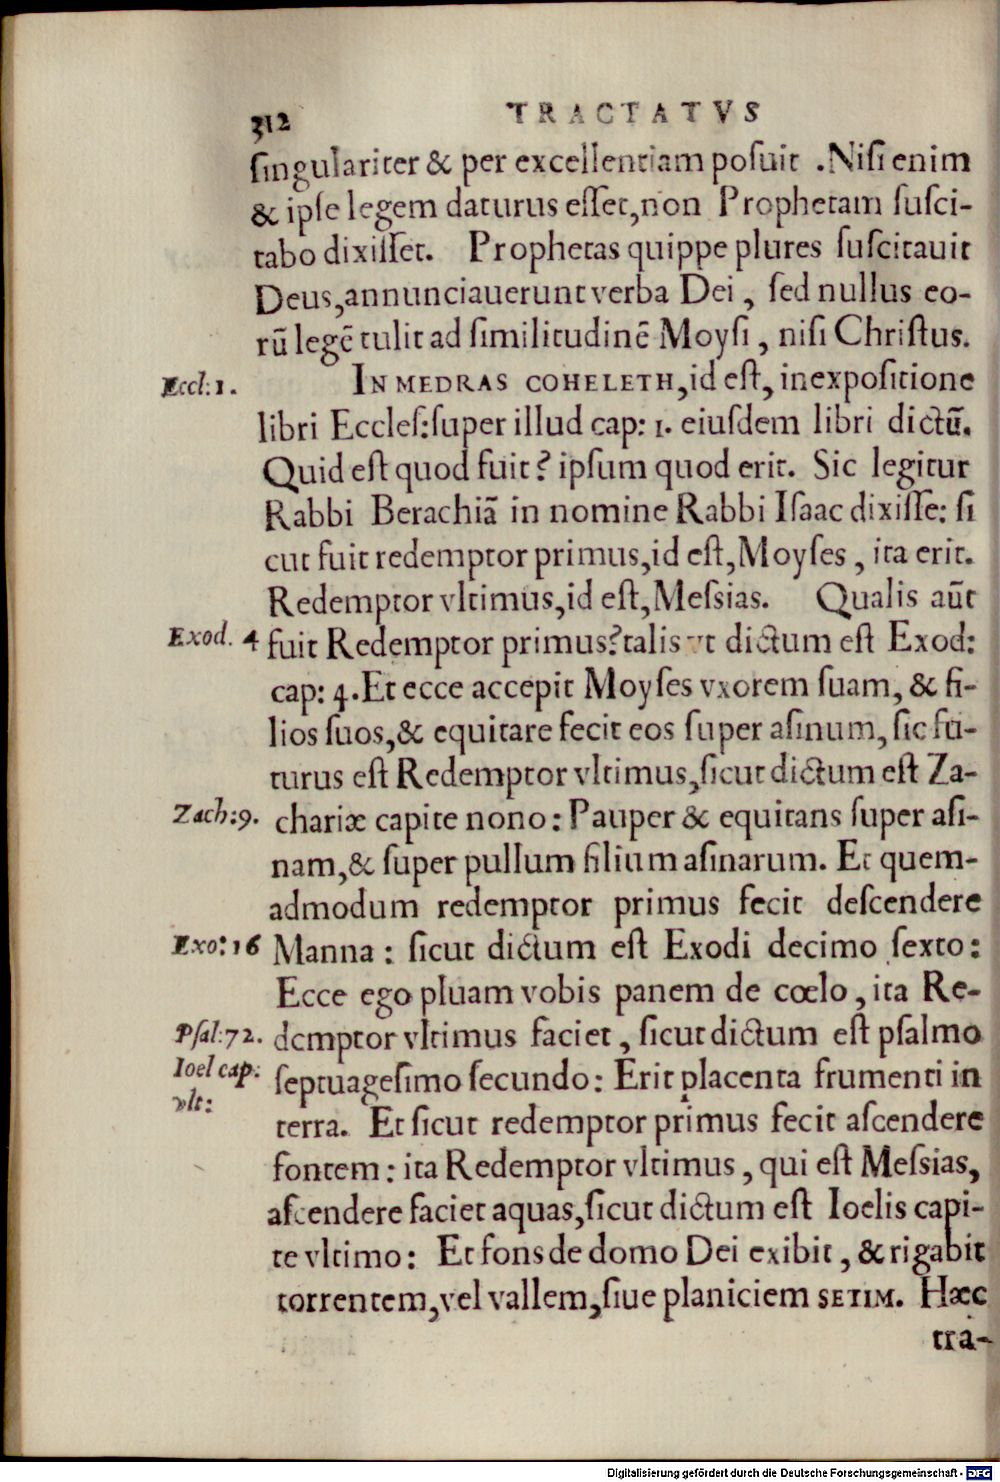 312 TRACTATVS
ſingulariter & per excellentiam poſuit . Niſi enim
& ipſe legem daturus eſſet, non Prophetam ſuſci-
tabo dixiſſet. Prophetas quippe plures ſuſcitauit
Deus, annunciauerunt verba Dei, ſed nullus eo-
rũ legẽ tulit ad ſimilitudinẽ Moyſi, niſi Chriſtus.
Eccl: 1. IN MEDRAS COHELETH, id eſt, in expoſitione
libri Eccleſ: ſuper illud cap: 1. eiuſdem libri dictũ.
Quid eſt quod fuit? ipſum quod erit. Sic legitur
Rabbi Berachiã in nomine Rabbi Iſaac dixiſſe: ſi
cut fuit redemptor primus, id eſt, Moyſes, ita erit.
Redemptor vltimus, id eſt, Meſsias. Qualis aũt
Exod. 4 fuit Redemptor primus? talis vt dictum eſt Exod:
cap: 4. Et ecce accepit Moyſes vxorem ſuam, & fi-
lios ſuos, & equitare fecit eos ſuper aſinum, ſic fu-
turus eſt Redemptor vltimus, ſicut dictum eſt Za-
Zach: 9. chariæ capite nono: Pauper & equitans ſuper aſi-
nam, & ſuper pullum filium aſinarum. Et quem-
admodum redemptor primus fecit deſcendere
Exo: 16 Manna: ſicut dictum eſt Exodi decimo ſexto:
Ecce ego pluam vobis panem de cœlo, ita Re-
Pſal: 72. demptor vltimus faciet, ſicut dictum eſt pſalmo
Ioel cap: ſeptuagesimo ſecundo: Erit placenta frumenti in
vlt: terra. Et ſicut redemptor primus fecit aſcendere
fontem: ita Redemptor vltimus, qui eſt Meſsias,
aſcendere faciet aquas, ſicut dictum eſt Ioelis capi-
te vltimo: Et fons de domo Dei exibit, & rigabit
torrentem, vel vallem, ſiue planiciem SETIM. Hæc
tra-
Digitalisierung gefördert durch die Deutsche Forschungsgemeinschaft - DFG